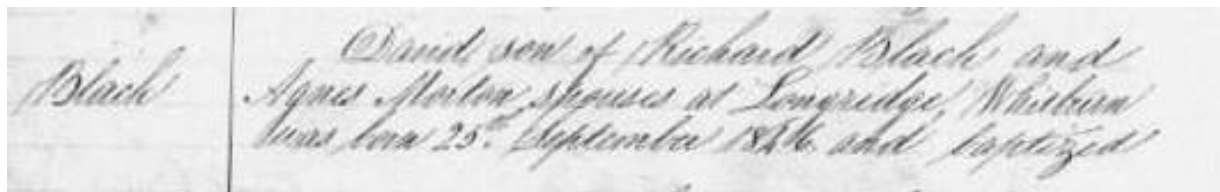 David son of Richard Black and
Black Agnes Morton spouses at Longridge, Whitburn
was born 25th September 1846 and baptized